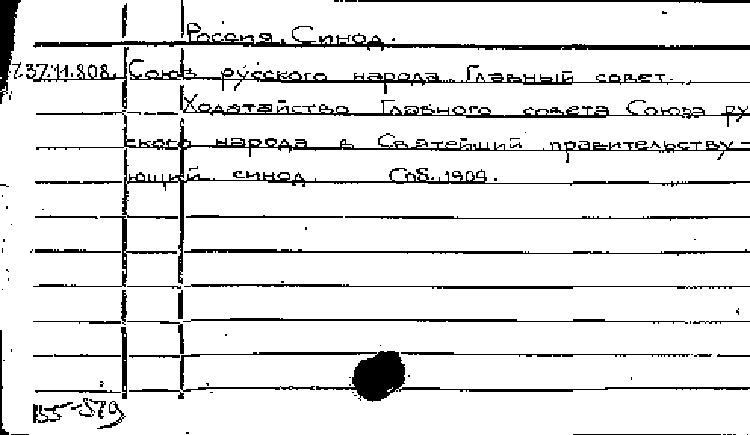 Россия. Синод.
737.11.808. Союз русского народа. Главный совет.
Ходатайство Главного совета Союза ру
ского народа в Святейший правительству-
ющий синод. Спб., 1909.
155-879